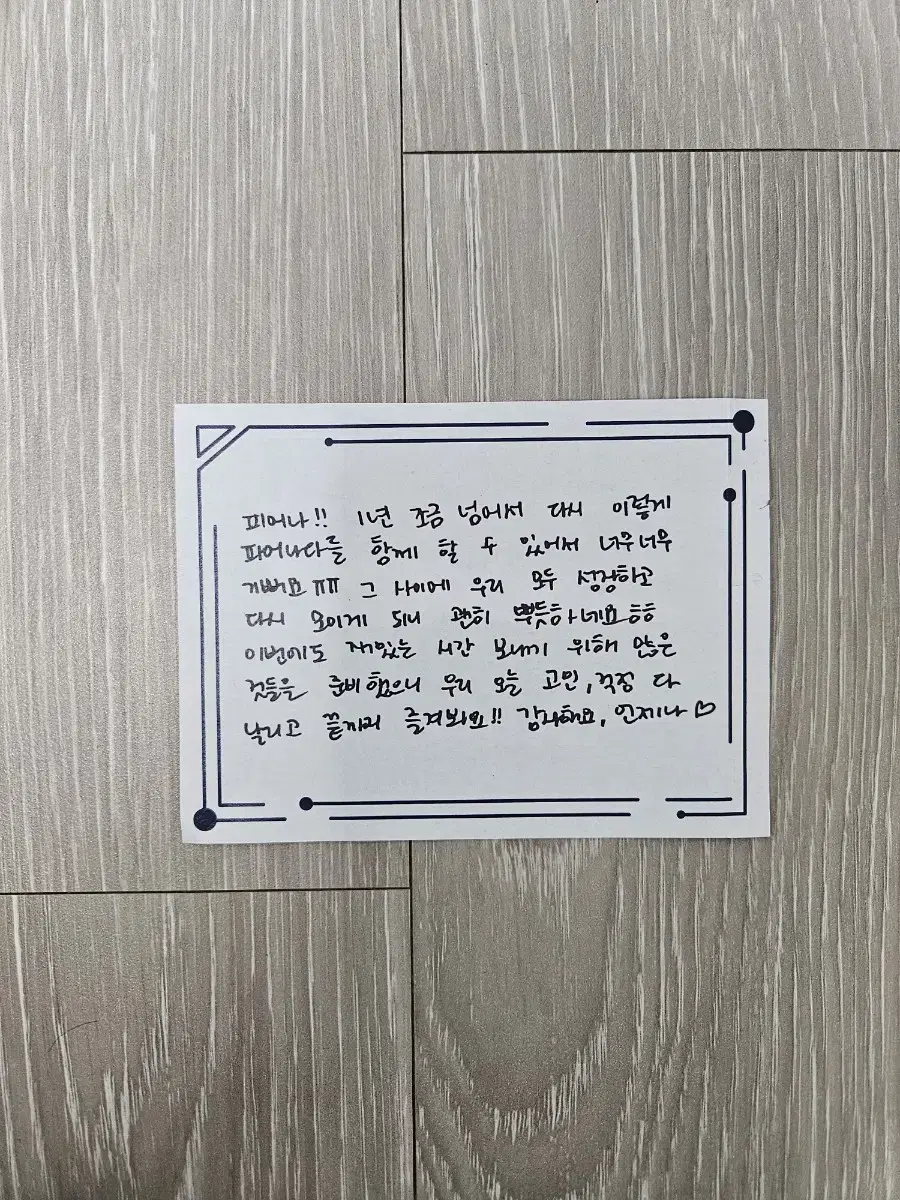 피어나!! 1년 조금 넘어서 다시 이렇게
피어나다를 함께 할 수 있어서 너무너무
기뻐요ㅠㅠ 그 사이에 우리 모두 성장하고
다시 모이게 되니 괜히 뿌듯하네요 ㅎㅎ
이번에도 재밌는 시간 보내기 위해 많은
것들을 준비했으니 우리 오늘 고민, 걱정 다
날리고 끝까지 즐겨봐요!! 감사해요, 언제나 ♡